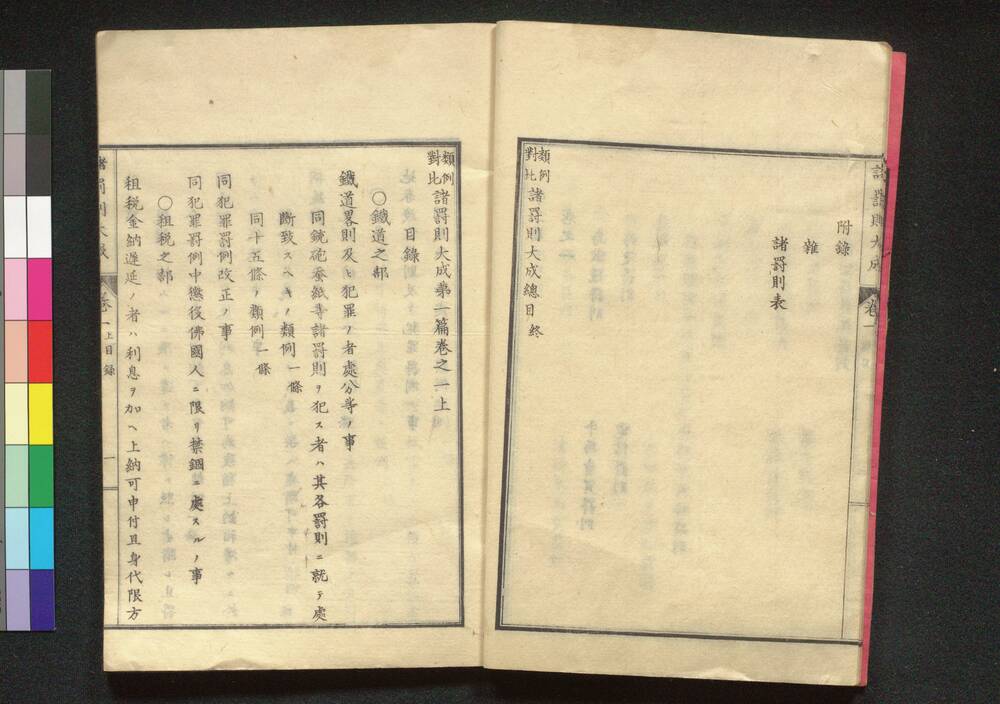 諸罰則大成 卷一
附錄
雜
諸罰則表
類例對比 諸罰則大成總目終
類例對比 諸罰則大成第一篇卷之一上
目錄
〇鐵道之部
鐵道畧則及ヒ犯罪ノ者處分等ノ事
同銃砲蚕紙等諸罰則ヲ犯ス者ハ其各罰則ニ就テ處
斷致スヘキノ類例一條
同十五條ノ類例一條
同犯罪罰例改正ノ事
同犯罪罰例中懲役佛國人ニ限リ禁錮ニ處スルノ事
〇租税之部
租税金納遅延ノ者ハ利息ヲ加ヘ上納可申付且身代限方
諸罰則大成 卷一上目錄 一